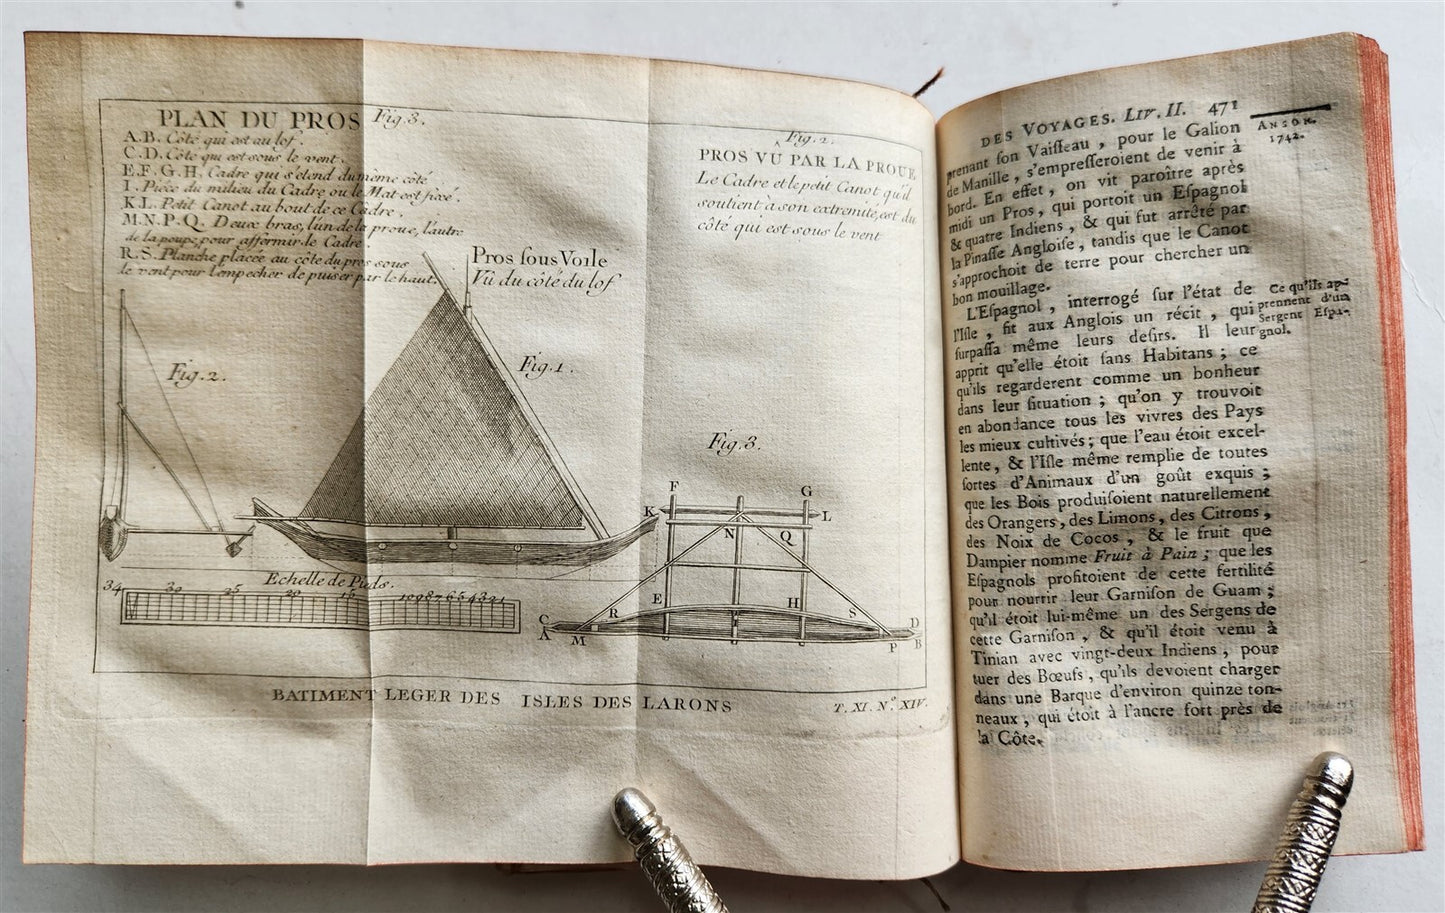 PLAN DU PROS Fig. 3.
A.B. Côté qui est au lof.
C.D. Côté qui est sous le vent.
E.F.G.H. Cadre qui s'etend du même côté
I. Piéce du milieu du Cadre ou le Mat est fixé.
K.L. Petit Canot au bout de ce Cadre.
M.N.P.Q. Deux bras, l'un de la proue, l'autre
de la poupe, pour affermir le Cadre.
R.S. Planche placée au côte du pros sous
le vent pour l'empecher de puiser par le haut.
Fig. 2.
PROS VÛ PAR LA PROUE
Le Cadre et le petit Canot qu'il
soutient a son extremité, est du
côté qui est sous le vent
Pros sous Voile
Vû du côté du lof
Fig. 2.
Fig. 1.
Fig. 3.
F G
K L
N Q
E H
R S
C D
A B
M P
Echelle de Pieds.
34 30 25 20 15 10 9 8 7 6 5 4 3 2 1
BATIMENT LEGER DES ISLES DES LARONS
T. XI. N.º XIV.
DES VOYAGES. Liv. II. 471
prenant ſon Vaiſſeau, pour le Galion
de Manille, s'empreſſeroient de venir à
bord. En effet, on vit paroître après
midi un Pros, qui portoit un Eſpagnol
& quatre Indiens, & qui fut arrêté par
la Pinaſſe Angloiſe, tandis que le Canot
s'approchoit de terre pour chercher un
bon mouillage.
L'Eſpagnol, interrogé ſur l'état de
l'Iſle, fit aux Anglois un récit, qui
ſurpaſſa même leurs deſirs. Il leur
apprit qu'elle étoit ſans Habitans; ce
qu'ils regarderent comme un bonheur
dans leur ſituation; qu'on y trouvoit
en abondance tous les vivres des Pays
les mieux cultivés; que l'eau étoit excel-
lente, & l'Iſle même remplie de toutes
ſortes d'Animaux d'un goût exquis;
que les Bois produiſoient naturellement
des Orangers, des Limons, des Citrons,
des Noix de Cocos, & le fruit que
Dampier nomme Fruit à Pain; que les
Eſpagnols profitoient de cette fertilité
pour nourrir leur Garniſon de Guam;
qu'il étoit lui-même un des Sergens de
cette Garniſon, & qu'il étoit venu à
Tinian avec vingt-deux Indiens, pour
tuer des Bœufs, qu'ils devoient charger
dans une Barque d'environ quinze ton-
neaux, qui étoit à l'ancre fort près de
la Côte.
ANSON.
1742.
Ce qu'ils ap-
prennent d'un
Sergent Eſpa-
gnol.